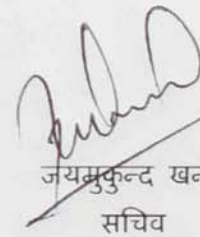 जयमुकुन्द खन
सचिव